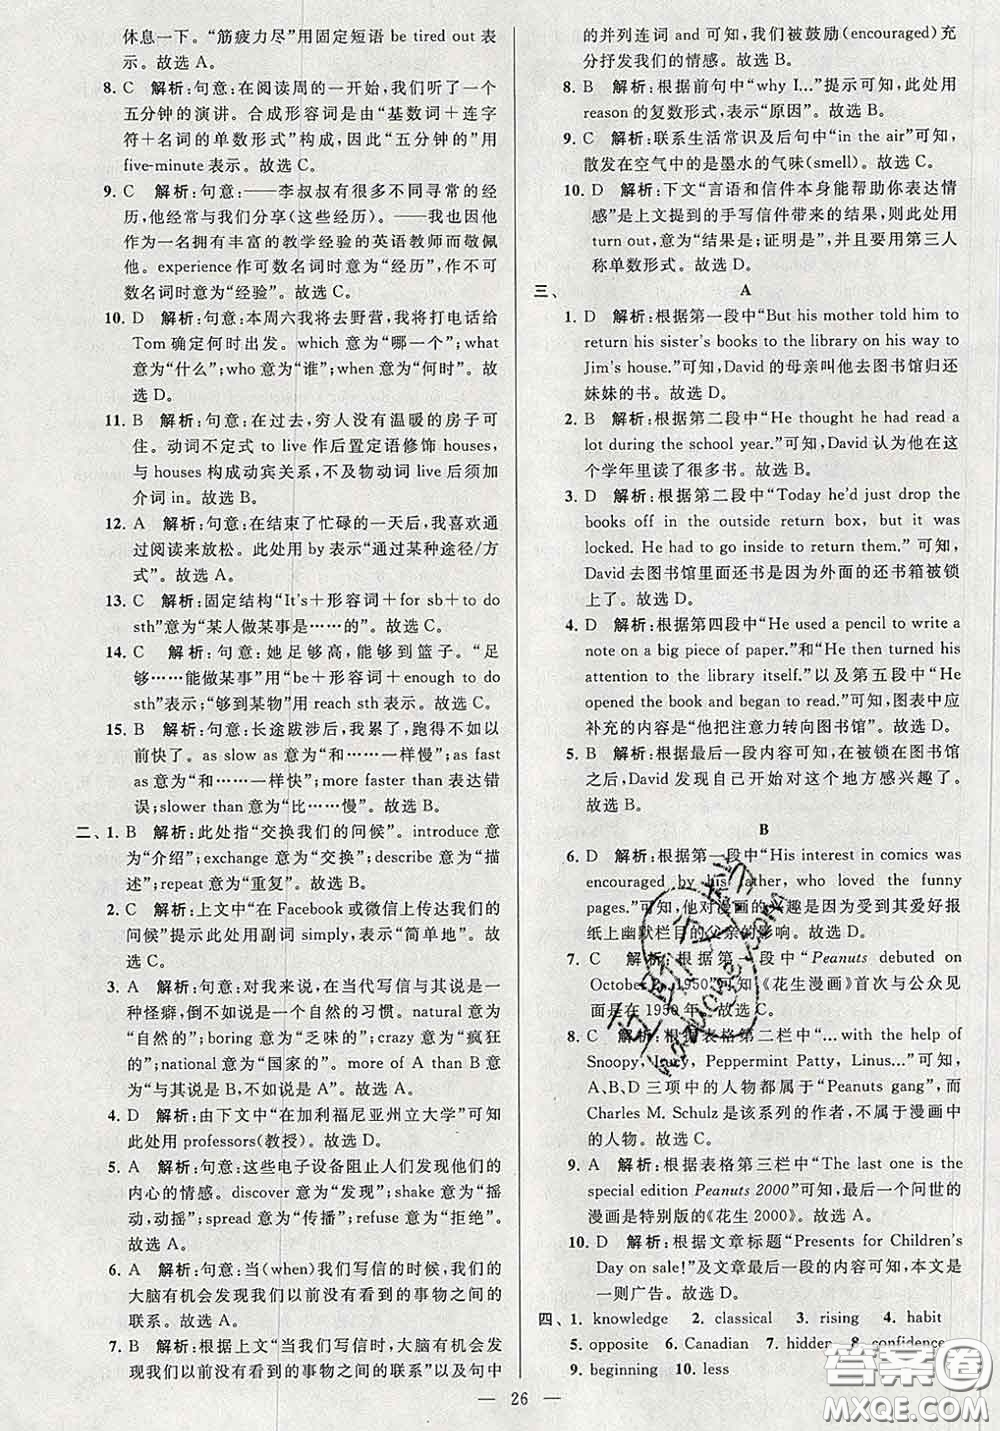 休息一下。“筋疲力尽”用固定短语 be tired out 表
示。故选 A。
8. C 解析:句意:在阅读周的一开始,我们举行了一个
五分钟的演讲。合成形容词是由“基数词+连字
符+名词的单数形式”构成,因此“五分钟的”用
five-minute 表示。故选 C。
9. C 解析:句意:——李叔叔有很多不同寻常的经
历,他经常与我们分享(这些经历)。——我也因他
作为一名拥有丰富的教学经验的英语教师而敬佩
他。experience 作可数名词时意为“经历”,作不可
数名词时意为“经验”。故选 C。
10. D 解析:句意:本周六我将去野营,我将打电话给
Tom 确定何时出发。which 意为“哪一个”;what
意为“什么”;who 意为“谁”;when 意为“何时”。故
选 D。
11. B 解析:句意:在过去,穷人没有温暖的房子可
住。动词不定式 to live 作后置定语修饰 houses,
与 houses 构成动宾关系,不及物动词 live 后须加
介词 in。故选 B。
12. A 解析:句意:在结束了忙碌的一天后,我喜欢通
过阅读来放松。此处用 by 表示“通过某种途径/方
式”。故选 A。
13. C 解析:固定结构“It's+形容词+for sb+to do
sth”意为“某人做某事是……的”。故选 C。
14. C 解析:句意:她足够高,能够到篮子。“足
够……能做某事”用“be+形容词+enough to do
sth”表示;“够到某物”用 reach sth 表示。故选 C。
15. B 解析:句意:长途跋涉后,我累了,跑得不如以
前快了。as slow as 意为“和……一样慢”;as fast
as 意为“和……一样快”;more faster than 表达错
误;slower than 意为“比……慢”。故选 B。
二、1. B 解析:此处指“交换我们的问候”。introduce 意
为“介绍”;exchange 意为“交换”;describe 意为“描
述”;repeat 意为“重复”。故选 B。
2. C 解析:上文中“在 Facebook 或微信上传达我们的
问候”提示此处用副词 simply,表示“简单地”。故
选 C。
3. A 解析:句意:对我来说,在当代写信与其说是一
种怪癖,倒不如说是一个自然的习惯。natural 意为
“自然的”;boring 意为“乏味的”;crazy 意为“疯狂
的”;national 意为“国家的”。more of A than B 意
为“与其说是 B,不如说是 A”。故选 A。
4. D 解析:由下文中“在加利福尼亚州立大学”可知
此处用 professors(教授)。故选 D。
5. A 解析:句意:这些电子设备阻止人们发现他们的
内心的情感。discover 意为“发现”;shake 意为“摇
动,动摇”;spread 意为“传播”;refuse 意为“拒绝”。
故选 A。
6. A 解析:句意:当(when)我们写信的时候,我们的
大脑有机会发现我们以前没有看到的事物之间的
联系。故选 A。
7. B 解析:根据上文“当我们写信时,大脑有机会发
现我们以前没有看到的事物之间的联系”以及句中
的并列连词 and 可知,我们被鼓励(encouraged)充
分抒发我们的情感。故选 B。
8. B 解析:根据前句中“why I...”提示可知,此处用
reason 的复数形式,表示“原因”。故选 B。
9. C 解析:联系生活常识及后句中“in the air”可知,
散发在空气中的是墨水的气味(smell)。故选 C。
10. D 解析:下文“言语和信件本身能帮助你表达情
感”是上文提到的手写信件带来的结果,所以此处用
turn out,意为“结果是;证明是”,并且要用第三人
称单数形式。故选 D。
三、 A
1. D 解析:根据第一段中“But his mother told him to
return his sister's books to the library on his way to
Jim's house.”可知,David 的母亲叫他去图书馆归还
妹妹的书。故选 D。
2. B 解析:根据第二段中“He thought he had read a
lot during the school year.”可知,David 认为他在这
个学年里读了很多书。故选 B。
3. D 解析:根据第二段中“Today he'd just drop the
books off in the outside return box, but it was
locked. He had to go inside to return them.”可知,
David 去图书馆里面还书是因为外面的还书箱被锁
上了。故选 D。
4. D 解析:根据第四段中“He used a pencil to write a
note on a big piece of paper.”和“He then turned his
attention to the library itself.”以及第五段中“He
opened the book and began to read.”可知,图表中应
补充的内容是“他把注意力转向图书馆”。故选 D。
5. B 解析:根据最后一段内容可知,在被锁在图书馆
之后,David 发现自己开始对这个地方感兴趣了。
故选 B。
B
6. D 解析:根据第一段中“His interest in comics was
encouraged by his father, who loved the funny
pages.”可知,他对漫画的兴趣是因为受到其爱好报
纸上幽默栏目的父亲的影响。故选 D。
7. C 解析:根据第一段中“Peanuts debuted on
October 2, 1950”可知《花生漫画》首次与公众见
面是在 1950 年。故选 C。
8. C 解析:根据表格第二栏中“...with the help of
Snoopy, Lucy, Peppermint Patty, Linus...”可知,
A、B、D 三项中的人物都属于“Peanuts gang”,而
Charles M. Schulz 是该系列的作者,不属于漫画中
的人物。故选 C。
9. A 解析:根据表格第三栏中“The last one is the
special edition Peanuts 2000”可知,最后一个问世的
漫画是特别版的《花生 2000》。故选 A。
10. D 解析:根据文章标题“Presents for Children's
Day on sale!”及文章最后一段的内容可知,本文是
一则广告。故选 D。
四、1. knowledge 2. classical 3. rising 4. habit
5. opposite 6. Canadian 7. hidden 8. confidence
9. beginning 10. less
— 26 —
答案圈
MXQE.COM